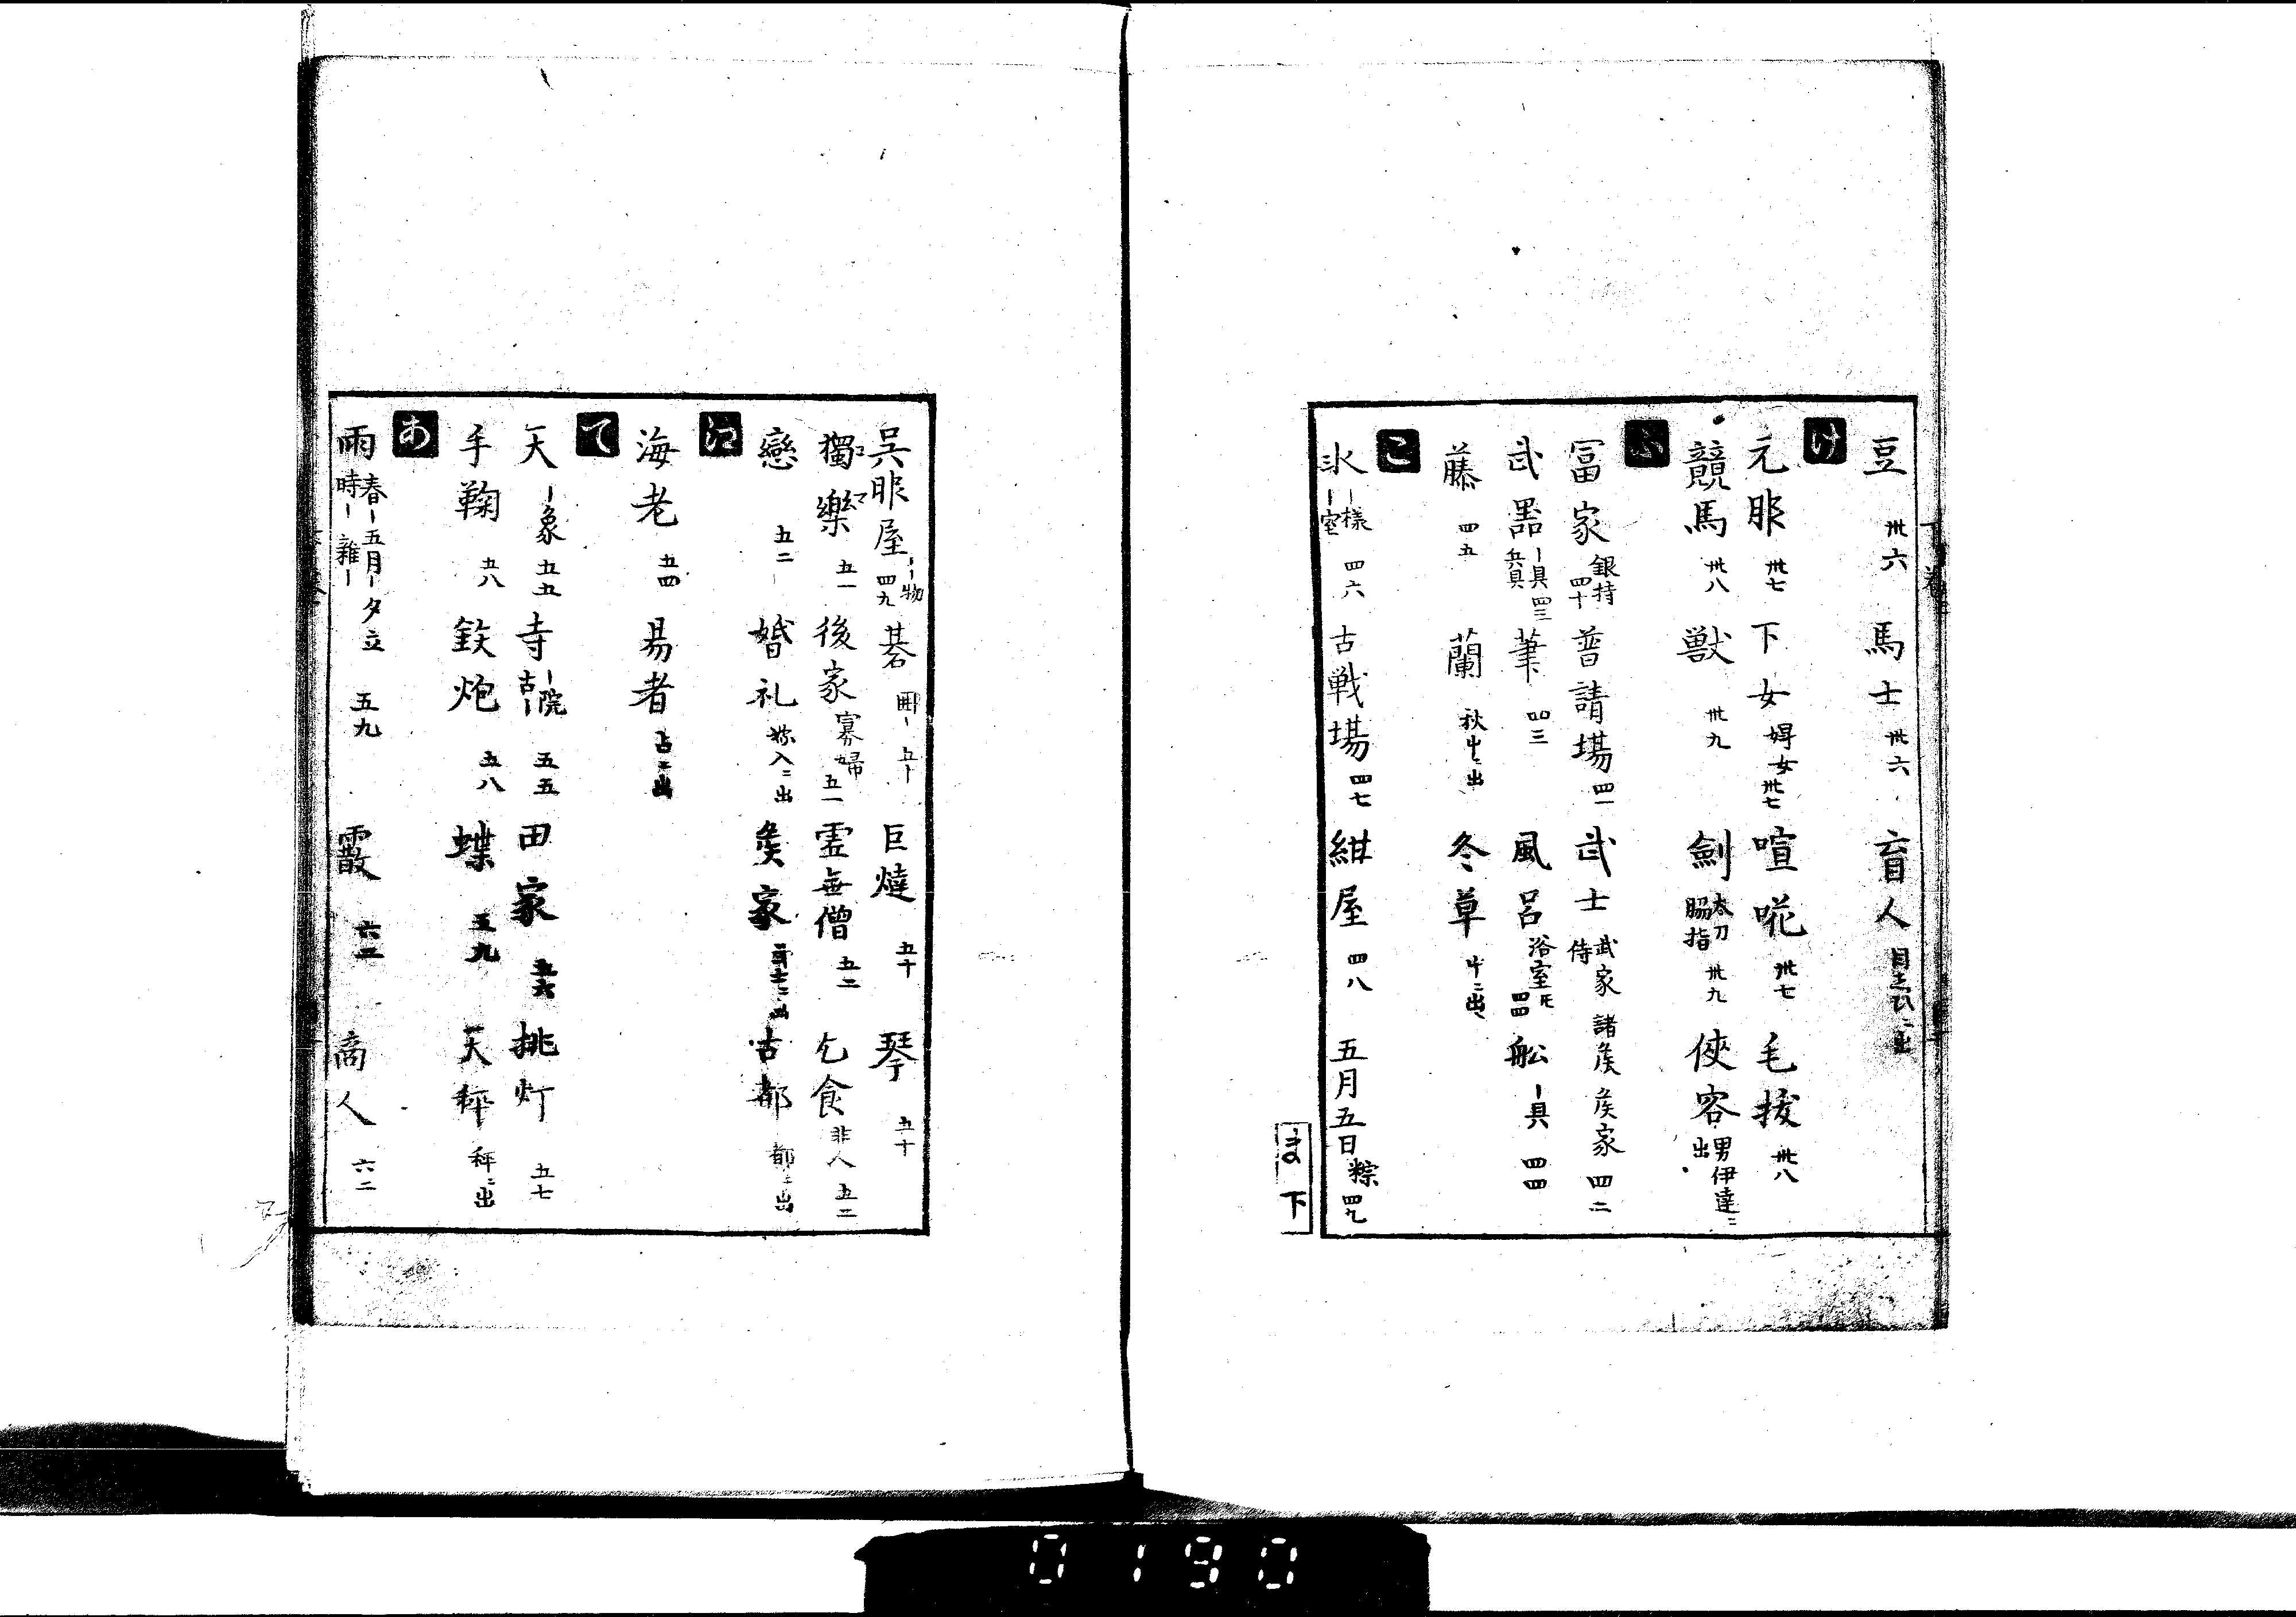 豆 卅六 馬士 卅六 盲人
け
元服 卅七 下女 婢女 卅七 喧𠵅 卅七 毛拔 卅八
競馬 卅八 獣 卅九 劍 太刀 脇指 卅九 侠客 男伊達ニ出
ふ
冨家 銀持 四十 普請場 四一 武士 武家 侍 諸矦 矦家 四二
武噐 ー具 兵具 四三 筆 四三 風呂 浴室 四四 舩 ー具 四四
藤 四五 蘭 秋艸ニ出 冬草 艸ニ出
こ
氷 ー様 ー室 四六 古戦場 四七 紺屋 四八 五月五日 粽 四九
下
呉服屋 ーー物 四九 碁 囲ー 五十 巨燵 五十 琴 五十
獨樂 コマ 五一 後家 寡婦 五一 虚無僧 五二 乞食 非人 五二
戀 五二 婚礼 嫁入ニ出 矦家 武士ニ出 古都 都ニ出
江
海老 五四 易者 占ニ出
て
天 ー象 五五 寺 ー院 古ー 五五 田家 五六 挑灯 五七
手鞠 五八 鉄炮 五八 蝶 五九 天秤 秤ニ出
あ
雨 春ー 五月ー 夕立 時ー 雜ー 五九 霰 六二 商人 六二
0190